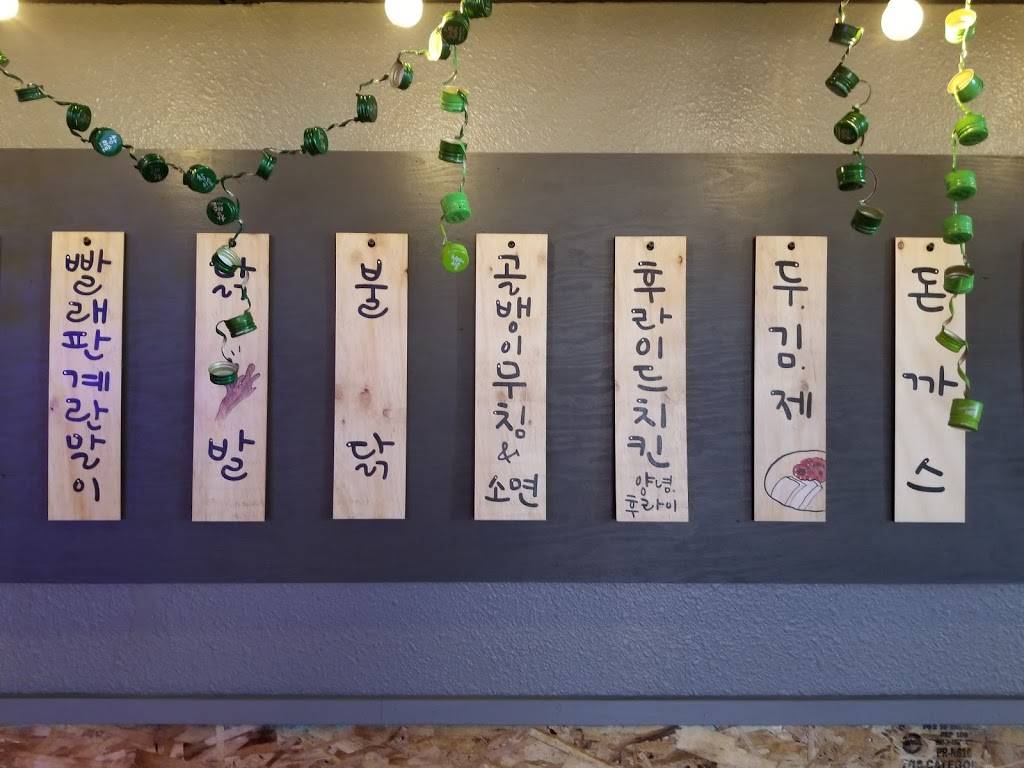 빨래판계란말이
닭발
불닭
골뱅이무침&소면
후라이드치킨
양념
후라이
두.김.제
돈까스
PRP 108
PR-N610